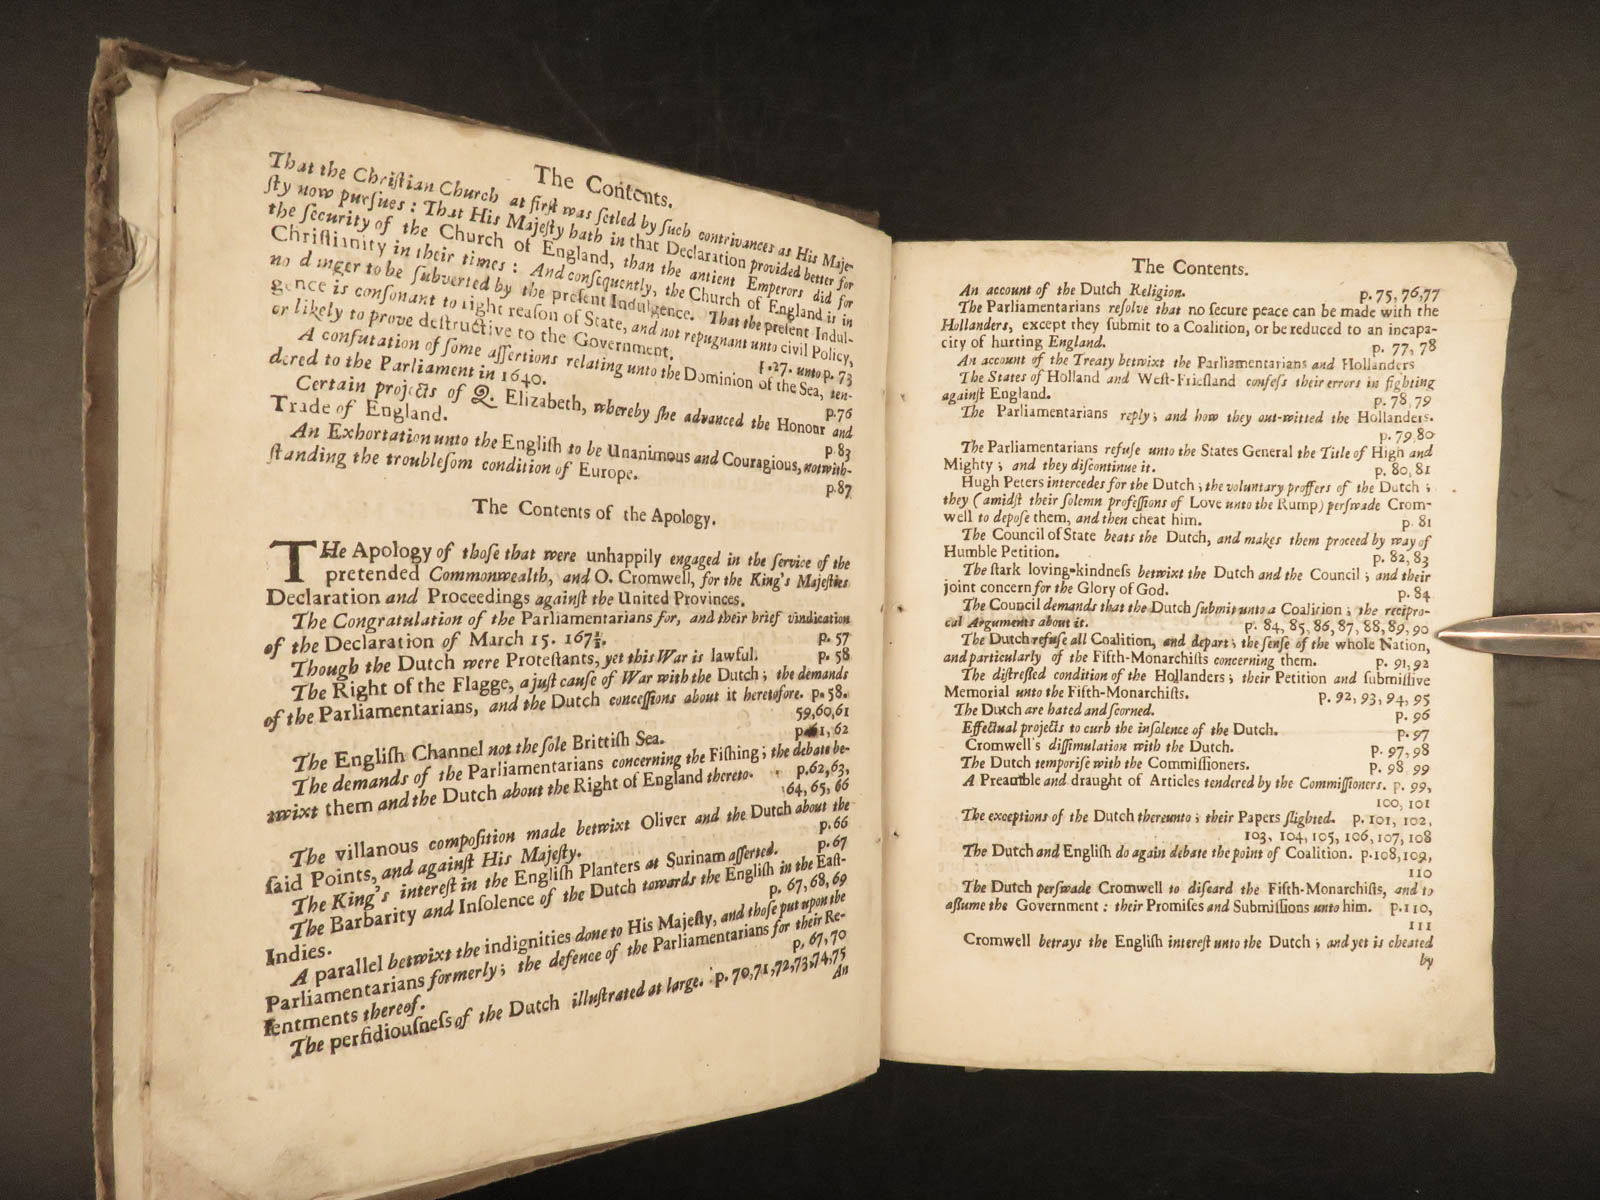 The Contents.
That the Chriſtian Church at firſt was ſetled by ſuch contrivances as His Maje-
ſty now purſues : That His Majeſty hath in that Declaration provided better for
the ſecurity of the Church of England, than the antient Emperors did for
Chriſtianity in their times : And conſequently, the Church of England is in
no danger to be ſubverted by the preſent Indulgence. That the preſent Indul-
gence is conſonant to right reaſon of State, and not repugnant unto civil Policy,
or likely to prove deſtructive to the Government. p.27. unto p. 73
A confutation of ſome aſſertions relating unto the Dominion of the Sea, ten-
dered to the Parliament in 1640. p.76
Certain projects of Q. Elizabeth, whereby ſhe advanced the Honour and
Trade of England. p.83
An Exhortation unto the Engliſh to be Unanimous and Couragious, notwith-
ſtanding the troubleſom condition of Europe. p.87
The Contents of the Apology.
THe Apology of thoſe that were unhappily engaged in the ſervice of the
pretended Commonwealth, and O. Cromwell, for the King's Majeſties
Declaration and Proceedings againſt the United Provinces.
The Congratulation of the Parliamentarians for, and their brief vindication
of the Declaration of March 15. 167½. p. 57
Though the Dutch were Proteſtants, yet this War is lawful. p. 58
The Right of the Flagge, a juſt cauſe of War with the Dutch ; the demands
of the Parliamentarians, and the Dutch conceſſions about it heretofore. p. 58.
59,60,61
The Engliſh Channel not the ſole Brittiſh Sea. p.61,62
The demands of the Parliamentarians concerning the Fiſhing ; the debate be-
twixt them and the Dutch about the Right of England thereto. p.62,63,
64, 65, 66
The villanous compoſition made betwixt Oliver and the Dutch about the
ſaid Points, and againſt His Majeſty. p.66
The King's intereſt in the Engliſh Planters at Surinam aſſerted. p.67
The Barbarity and Inſolence of the Dutch towards the Engliſh in the Eaſt-
Indies. p. 67,68,69
A parallel betwixt the indignities done to His Majeſty, and thoſe put upon the
Parliamentarians formerly ; the defence of the Parliamentarians for their Re-
ſentments thereof. p. 67, 70
The perfidiouſneſs of the Dutch illuſtrated at large. p. 70,71,72,73,74,75
An
The Contents.
An account of the Dutch Religion. p. 75, 76,77
The Parliamentarians reſolve that no ſecure peace can be made with the
Hollanders, except they ſubmit to a Coalition, or be reduced to an incapa-
city of hurting England. p. 77, 78
An account of the Treaty betwixt the Parliamentarians and Hollanders
The States of Holland and Weſt-Frieſland confeſs their errors in fighting
againſt England. p. 78, 79
The Parliamentarians reply ; and how they out-witted the Hollanders.
p. 79,80
The Parliamentarians refuſe unto the States General the Title of High and
Mighty ; and they diſcontinue it. p. 80, 81
Hugh Peters intercedes for the Dutch ; the voluntary proffers of the Dutch ;
they ( amidſt their ſolemn profeſſions of Love unto the Rump ) perſwade Crom-
well to depoſe them, and then cheat him. p. 81
The Council of State beats the Dutch, and makes them proceed by way of
Humble Petition. p. 82, 83
The ſtark loving-kindneſs betwixt the Dutch and the Council ; and their
joint concern for the Glory of God. p. 84
The Council demands that the Dutch ſubmit unto a Coalition ; the recipro-
cal Arguments about it. p. 84, 85, 86, 87, 88, 89, 90
The Dutch refuſe all Coalition, and depart ; the ſenſe of the whole Nation,
and particularly of the Fifth-Monarchiſts concerning them. p. 91, 92
The diſtreſſed condition of the Hollanders ; their Petition and ſubmiſſive
Memorial unto the Fifth-Monarchiſts. p. 92, 93, 94, 95
The Dutch are hated and ſcorned. p. 96
Effectual projects to curb the inſolence of the Dutch. p. 97
Cromwell's diſſimulation with the Dutch. p. 97, 98
The Dutch temporiſe with the Commiſſioners. p. 98 99
A Preamble and draught of Articles tendered by the Commiſſioners. p. 99,
100, 101
The exceptions of the Dutch thereunto ; their Papers ſlighted. p. 101, 102,
103, 104, 105, 106, 107, 108
The Dutch and Engliſh do again debate the point of Coalition. p.108,109,
110
The Dutch perſwade Cromwell to diſcard the Fifth-Monarchiſts, and to
aſſume the Government : their Promiſes and Submiſſions unto him. p.110,
111
Cromwell betrays the Engliſh intereſt unto the Dutch ; and yet is cheated
by